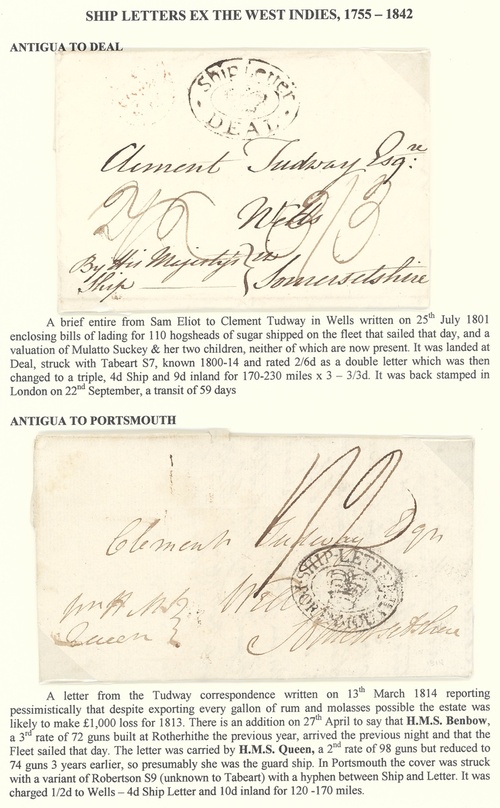 SHIP LETTERS EX THE WEST INDIES, 1755 – 1842
ANTIGUA TO DEAL
Ship Letter
DEAL
Clement Tudway Esqre
2/6 Wells 3/3
By His Majesty's
Ship
Somersetshire
A brief entire from Sam Eliot to Clement Tudway in Wells written on 25th July 1801
enclosing bills of lading for 110 hogsheads of sugar shipped on the fleet that sailed that day, and a
valuation of Mulatto Suckey & her two children, neither of which are now present. It was landed at
Deal, struck with Tabeart S7, known 1800-14 and rated 2/6d as a double letter which was then
changed to a triple, 4d Ship and 9d inland for 170-230 miles x 3 – 3/3d. It was back stamped in
London on 22nd September, a transit of 59 days
ANTIGUA TO PORTSMOUTH
1/2
Clement Tudway Esqr
SHIP-LETTER
PORTSMOUTH
H M S
Queen
Somersetshire
A letter from the Tudway correspondence written on 13th March 1814 reporting
pessimistically that despite exporting every gallon of rum and molasses possible the estate was
likely to make £1,000 loss for 1813. There is an addition on 27th April to say that H.M.S. Benbow,
a 3rd rate of 72 guns built at Rotherhithe the previous year, arrived the previous night and that the
Fleet sailed that day. The letter was carried by H.M.S. Queen, a 2nd rate of 98 guns but reduced to
74 guns 3 years earlier, so presumably she was the guard ship. In Portsmouth the cover was struck
with a variant of Robertson S9 (unknown to Tabeart) with a hyphen between Ship and Letter. It was
charged 1/2d to Wells – 4d Ship Letter and 10d inland for 120 -170 miles.